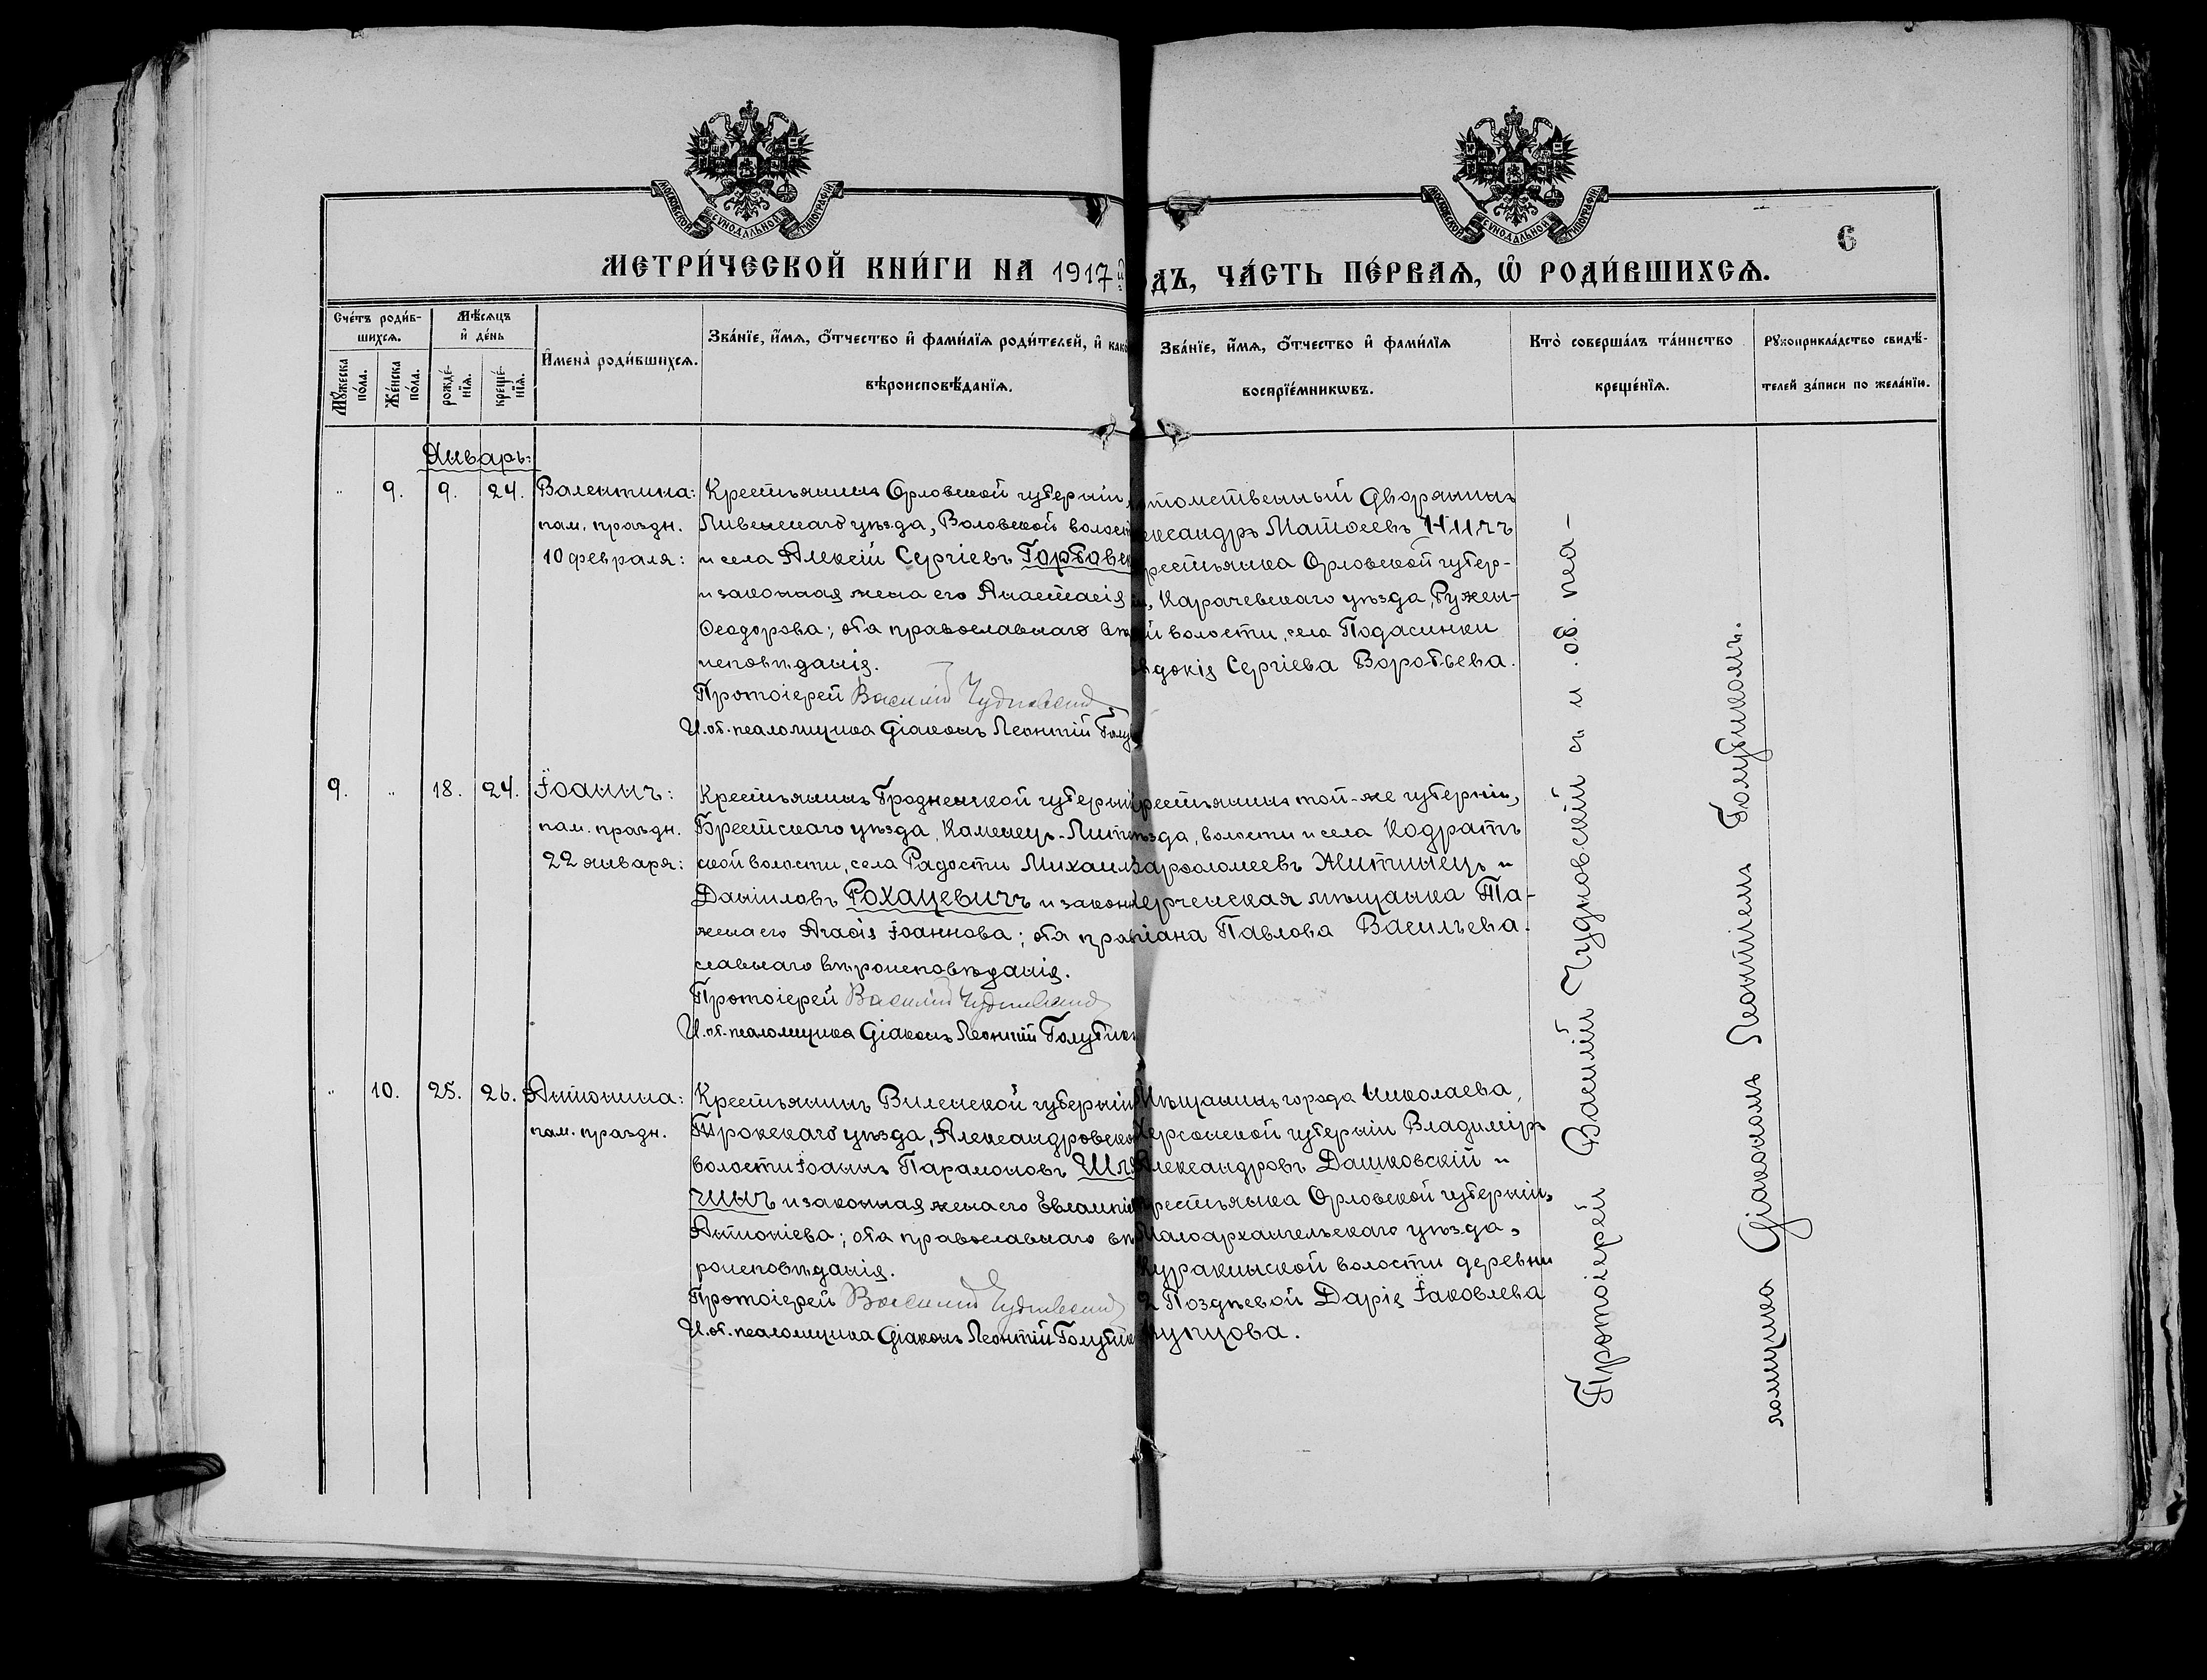 МОСКОВСКОЙ СѴНОДАЛЬНОЙ ТИПОГРАФІИ
МОСКОВСКОЙ СѴНОДАЛЬНОЙ ТИПОГРАФІИ
6
МЕТРИ́ЧЕСКОЙ КНИ́ГИ НА 1917й
ОДЪ, ЧА́СТЬ ПЕ́РВАѦ, Ѡ҆ РОДИ́ВШИХСѦ.
Сче́тъ роди́в-
шихсѧ.
Мꙋ́жеска по́ла.
Же́нска по́ла.
Мѣ́сѧцъ
и҆ де́нь
рожде́-
нїѧ.
креще́-
нїѧ.
И҆мена̀ роди́вшихсѧ.
Зва́нїе, и҆́мѧ, ѻ҆́тчество и҆ фами́лїѧ роди́телей, и҆ како
вѣроисповѣ́данїѧ.
Зва́нїе, и҆́мѧ, ѻ҆́тчество и҆ фами́лїѧ
воспрїе́мникѡвъ.
Кто̀ соверша́лъ та́инство
креще́нїѧ.
Рꙋкоприкла́дство свидѣ́-
телей за́писи по жела́нїю.
Январь:
" 9. 9. 24. Валентина:
пам. праздн.
10 февраля:
Крестьянинъ Орловской губерніи,
Ливенскаго уѣзда, Воловской волост
и села Алексій Сергіевъ Горбовск
и законная жена его Анастасія
Ѳеодорова; оба православнаго вѣ
исповѣданія.
Протоіерей Василій Чудновскій
И.об.псаломщика Діаконъ Леонтій Голу
отомственный Дворянинъ
ександръ Матѳеевъ Ничъ
рестьянка Орловской губер-
и, Карачевскаго уѣзда, Ружен-
й волости, села Подасинки
вдокія Сергіева Воробьева.
9. " 18. 24. Іоаннъ:
пам. праздн.
22 января:
Крестьянинъ Гродненской губерніи
Брестскаго уѣзда, Каменец-Лит
ской волости, села Радости Михаил
Даніиловъ Рохацевичъ и закон
жена его Агаѳія Іоаннова; оба прав
славнаго вѣроисповѣданія.
Протоіерей Василій Чудновскій
И.об.псаломщика Діаконъ Леонтій Голубник
рестьянинъ той-же губерніи,
ѣзда, волости и села Кодратъ
Варѳоломеевъ Житинецъ и
Керченская мѣщанка Та-
тіана Павлова Васильева.
" 10. 25. 26. Антонина:
пам. праздн.
Крестьянинъ Виленской губерніи
Трокскаго уѣзда, Александровско
волости Іоаннъ Парамоновъ Шля
чинъ и законная жена его Евлампія
Антоніева; оба православнаго вѣ
роисповѣданія.
Протоіерей Василій Чудновскій
И.об.псаломщика Діаконъ Леонтій Голубник
Мѣщанинъ города Николаева,
Херсонской губерніи Владиміръ
Александровъ Дашковскій и
крестьянка Орловской губерніи,
Малоархангельскаго уѣзда,
Куракинской волости деревни
2 Позднѣевой Дарія Іаковлева
Купцова.
Протоіерей Василій Чудновскій съ и. об. пса-
ломщика Діакономъ Леонтіемъ Голубникомъ.